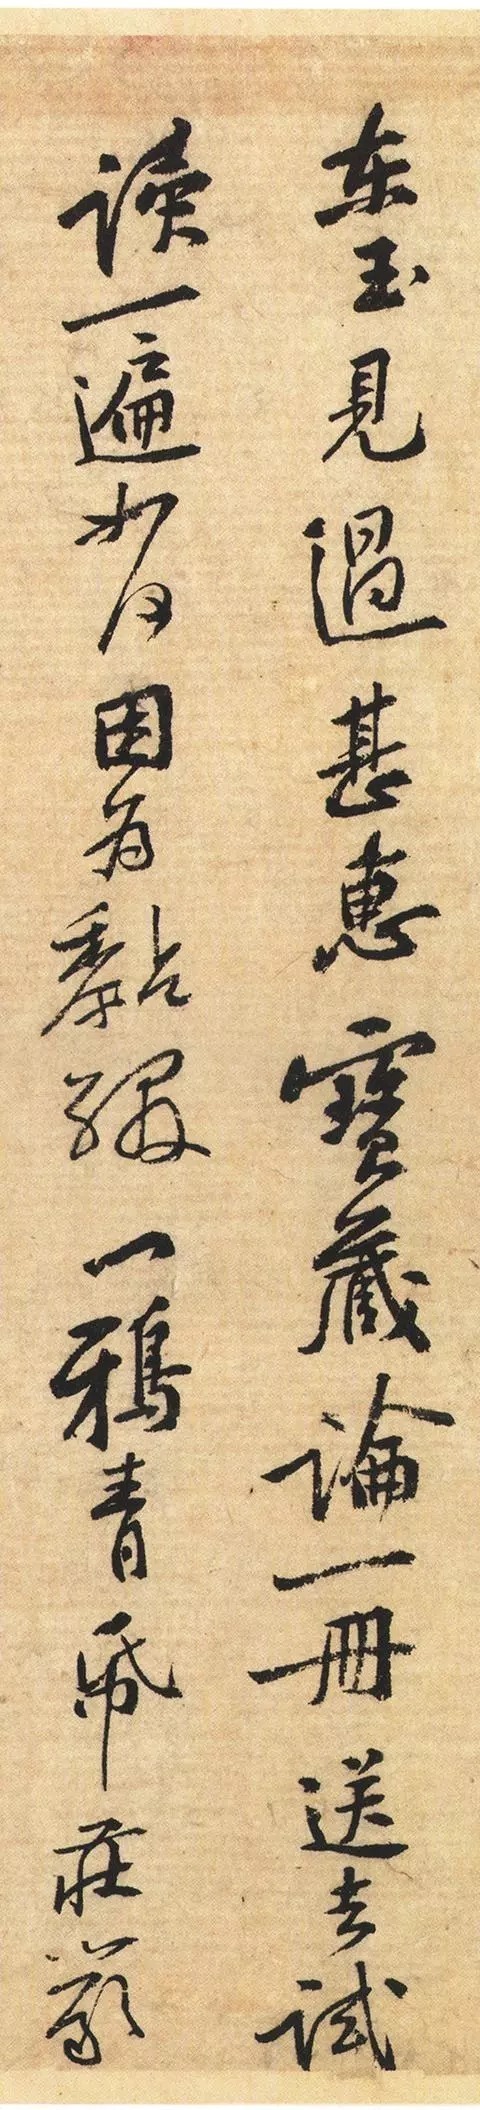 东玉見過甚惠寶藏論一冊送去試
讀一遍如何因為黏綴一鴉青帋莊嚴